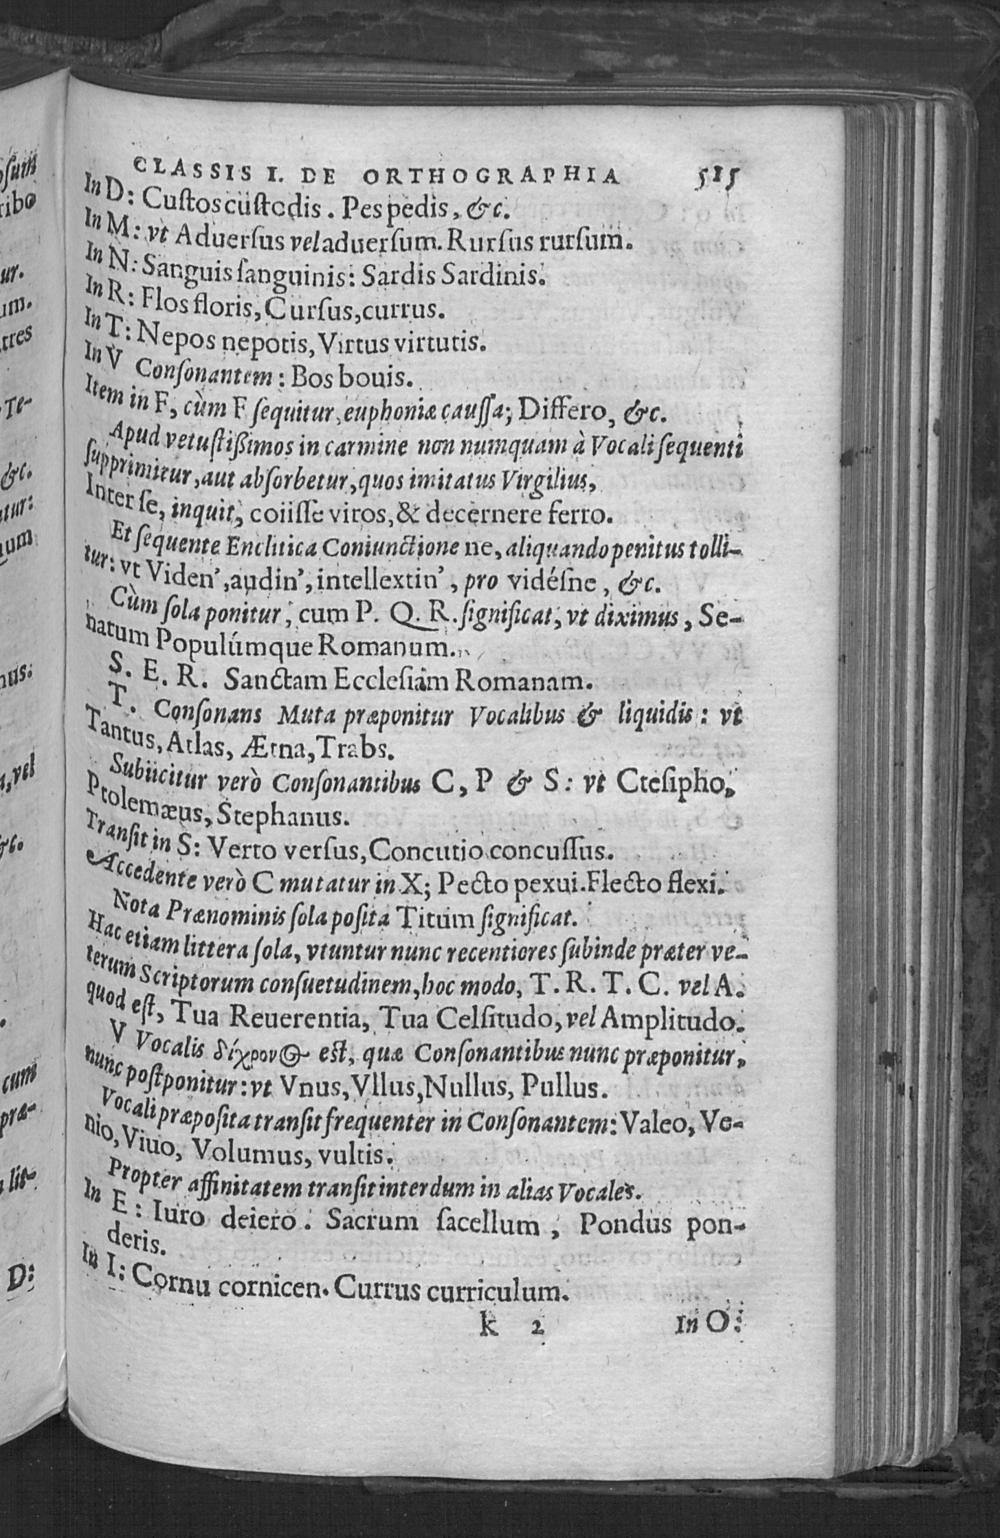 CLASSIS I. DE ORTHOGRAPHIA 515
In D: Cuſtos cuſtodis. Pes pedis, &c.
In M: vt Aduerſus vel aduerſum. Rurſus rurſum.
In N: Sanguis ſanguinis: Sardis Sardinis.
In R: Flos floris, Curſus, currus.
In T: Nepos nepotis, Virtus virtutis.
In V Conſonantem: Bos bouis.
Item in F, cùm F ſequitur, euphoniæ cauſſa; Differo, &c.
Apud vetuſtißimos in carmine non numquam à Vocali ſequenti
ſupprimitur, aut abſorbetur, quos imitatus Virgilius,
Inter ſe, inquit, coiiſſe viros, & decernere ferro.
Et ſequente Enclitica Coniunctione ne, aliquando penitus tolli-
tur: vt Viden', audin', intellextin', pro vidéſne, &c.
Cùm ſola ponitur, cum P. Q. R. ſignificat, vt diximus, Se-
natum Populúmque Romanum.
S. E. R. Sanctam Eccleſiam Romanam.
T. Conſonans Muta præponitur Vocalibus & liquidis: vt
Tantus, Atlas, Ætna, Trabs.
Subiicitur verò Conſonantibus C, P & S: vt Cteſipho,
Ptolemæus, Stephanus.
Tranſit in S: Verto verſus, Concutio concuſſus.
Accedente verò C mutatur in X; Pecto pexui. Flecto flexi.
Nota Prænominis ſola poſita Titum ſignificat.
Hac etiam littera ſola, vtuntur nunc recentiores ſubinde præter ve-
terum Scriptorum conſuetudinem, hoc modo, T. R. T. C. vel A.
quod eſt, Tua Reuerentia, Tua Celſitudo, vel Amplitudo.
V Vocalis δίχρονος eſt, quæ Conſonantibus nunc præponitur,
nunc poſtponitur: vt Vnus, Vllus, Nullus, Pullus.
Vocali præpoſita tranſit frequenter in Conſonantem: Valeo, Ve-
nio, Viuo, Volumus, vultis.
Propter affinitatem tranſit interdum in alias Vocales.
In E: Iuro deiero. Sacrum ſacellum, Pondus pon-
deris.
In I: Cornu cornicen. Currus curriculum.
k 2 In O: